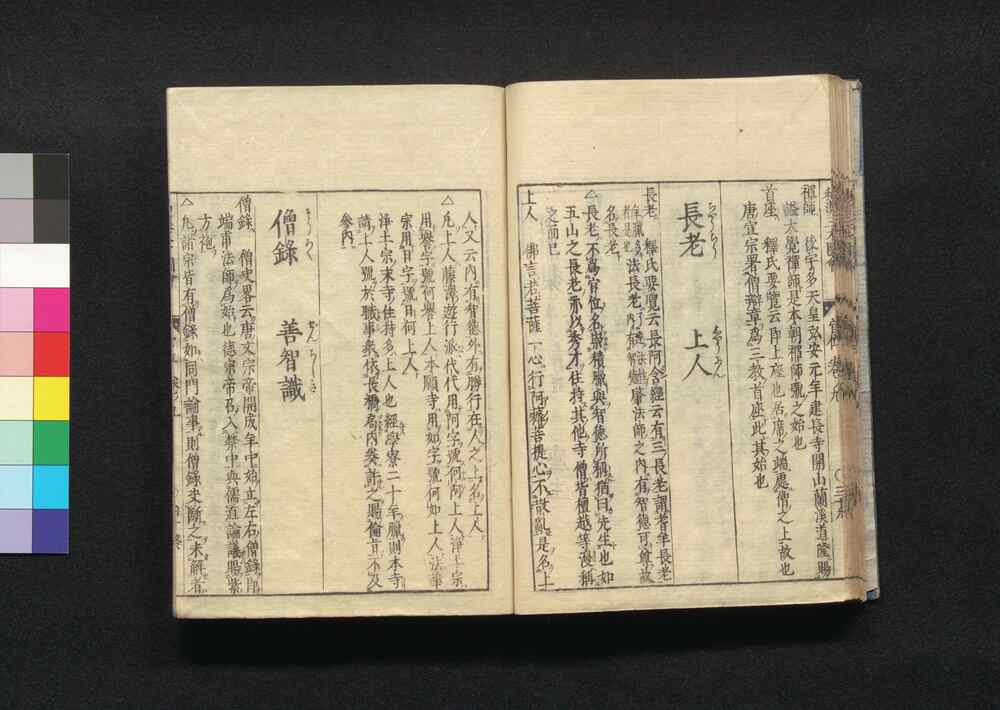 祖師 後宇多天皇弘安元年建長寺開山蘭溪道隆賜
謚大覺禪師是本朝禪師號之始也
首座 釋氏要覽云即上座也居席之端處僧之上故也
唐宣宗署僧辯章爲三教首座此其始也
ちやうらう
長老
しやうにん
上人
長老 釋氏要覽云長阿含經云有三長老謂耆年長老
年臘多 法長老 了達法性内有智德 作長老 肇法師云内有智德可尊故
名長老
△長老不爲官位名崇積臘與智德所稱猶曰先生也如
五山之長老亦以秀才住持其他寺僧皆檀越等漫稱
之而已
上人 佛言若菩薩一心行阿耨菩提心不散亂是名上
人又云内有智德外有勝行在人之上名上人
△凡上人藤澤遊行派代代用阿字號何阿上人淨土宗
用譽字號何譽上人本願寺用如字號何如上人法華
宗用日字號日何上人
淨土宗末寺住持多上人也經學寮二十年臘則本寺
請上人號於職事衆依長橋局内奏許之賜倫旨不及
參内
そうろく
僧錄
ぜんちしき
善智識
僧錄 僧史畧云唐文宗帝開成年中始立左右僧錄即
端甫法師爲始也德宗帝召入禁中與儒道論議賜紫
方袍
△凡諸宗皆有僧錄如同門論事則僧錄史斷之未解者